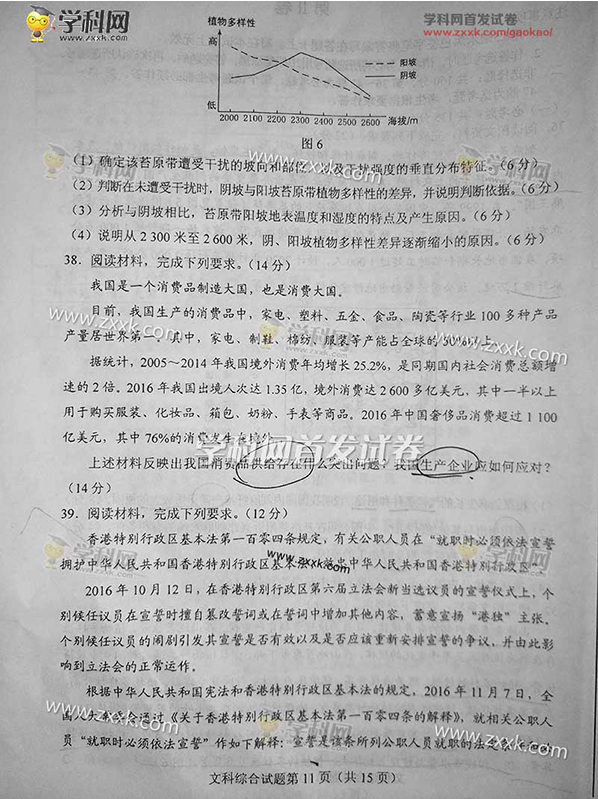 学科网
www.zxxk.com
学科网首发试卷
www.zxxk.com/gaokao/
植物多样性
高
低
阳坡
阴坡
2000 2100 2200 2300 2400 2500 2600 海拔/m
图6
(1) 确定该苔原带遭受干扰的坡向和部位,以及干扰强度的垂直分布特征。(6分)
(2) 判断在未遭受干扰时,阴坡与阳坡苔原带植物多样性的差异,并说明判断依据。(6分)
(3) 分析与阴坡相比,苔原带阳坡地表温度和湿度的特点及产生原因。(6分)
(4) 说明从2 300米至2 600米,阴、阳坡植物多样性差异逐渐缩小的原因。(6分)
38. 阅读材料,完成下列要求。(14分)
我国是一个消费品制造大国,也是消费大国。
目前,我国生产的消费品中,家电、塑料、五金、食品、陶瓷等行业100多种产品
产量居世界第一。其中,家电、制鞋、棉纺、服装等产能占全球的50%以上。
据统计,2005~2014年我国境外消费年均增长25.2%,是同期国内社会消费总额增
速的2倍。2016年我国出境人次达1.35亿,境外消费达2 600多亿美元,其中一半以上
用于购买服装、化妆品、箱包、奶粉、手表等商品。2016年中国奢侈品消费超过1 100
亿美元,其中76%的消费发生在境外。
学科网首发试卷
上述材料反映出我国消费品供给存在什么突出问题?我国生产企业应如何应对?
(14分)
39. 阅读材料,完成下列要求。(12分)
香港特别行政区基本法第一百零四条规定,有关公职人员在“就职时必须依法宣誓
拥护中华人民共和国香港特别行政区基本法,效忠中华人民共和国香港特别行政区”。
2016年10月12日,在香港特别行政区第六届立法会新当选议员的宣誓仪式上,个
别候任议员在宣誓时擅自篡改誓词或在誓词中增加其他内容,蓄意宣扬“港独”主张。
个别候任议员的闹剧引发其宣誓是否有效以及是否应该重新安排宣誓的争议,并由此影
响到立法会的正常运作。
根据中华人民共和国宪法和香港特别行政区基本法的规定,2016年11月7日,全
国人大常委会通过《关于香港特别行政区基本法第一百零四条的解释》,就相关公职人
员“就职时必须依法宣誓”作如下解释:宣誓是该条所列公职人员就职的法定条件和
文科综合试题第11页(共15页)